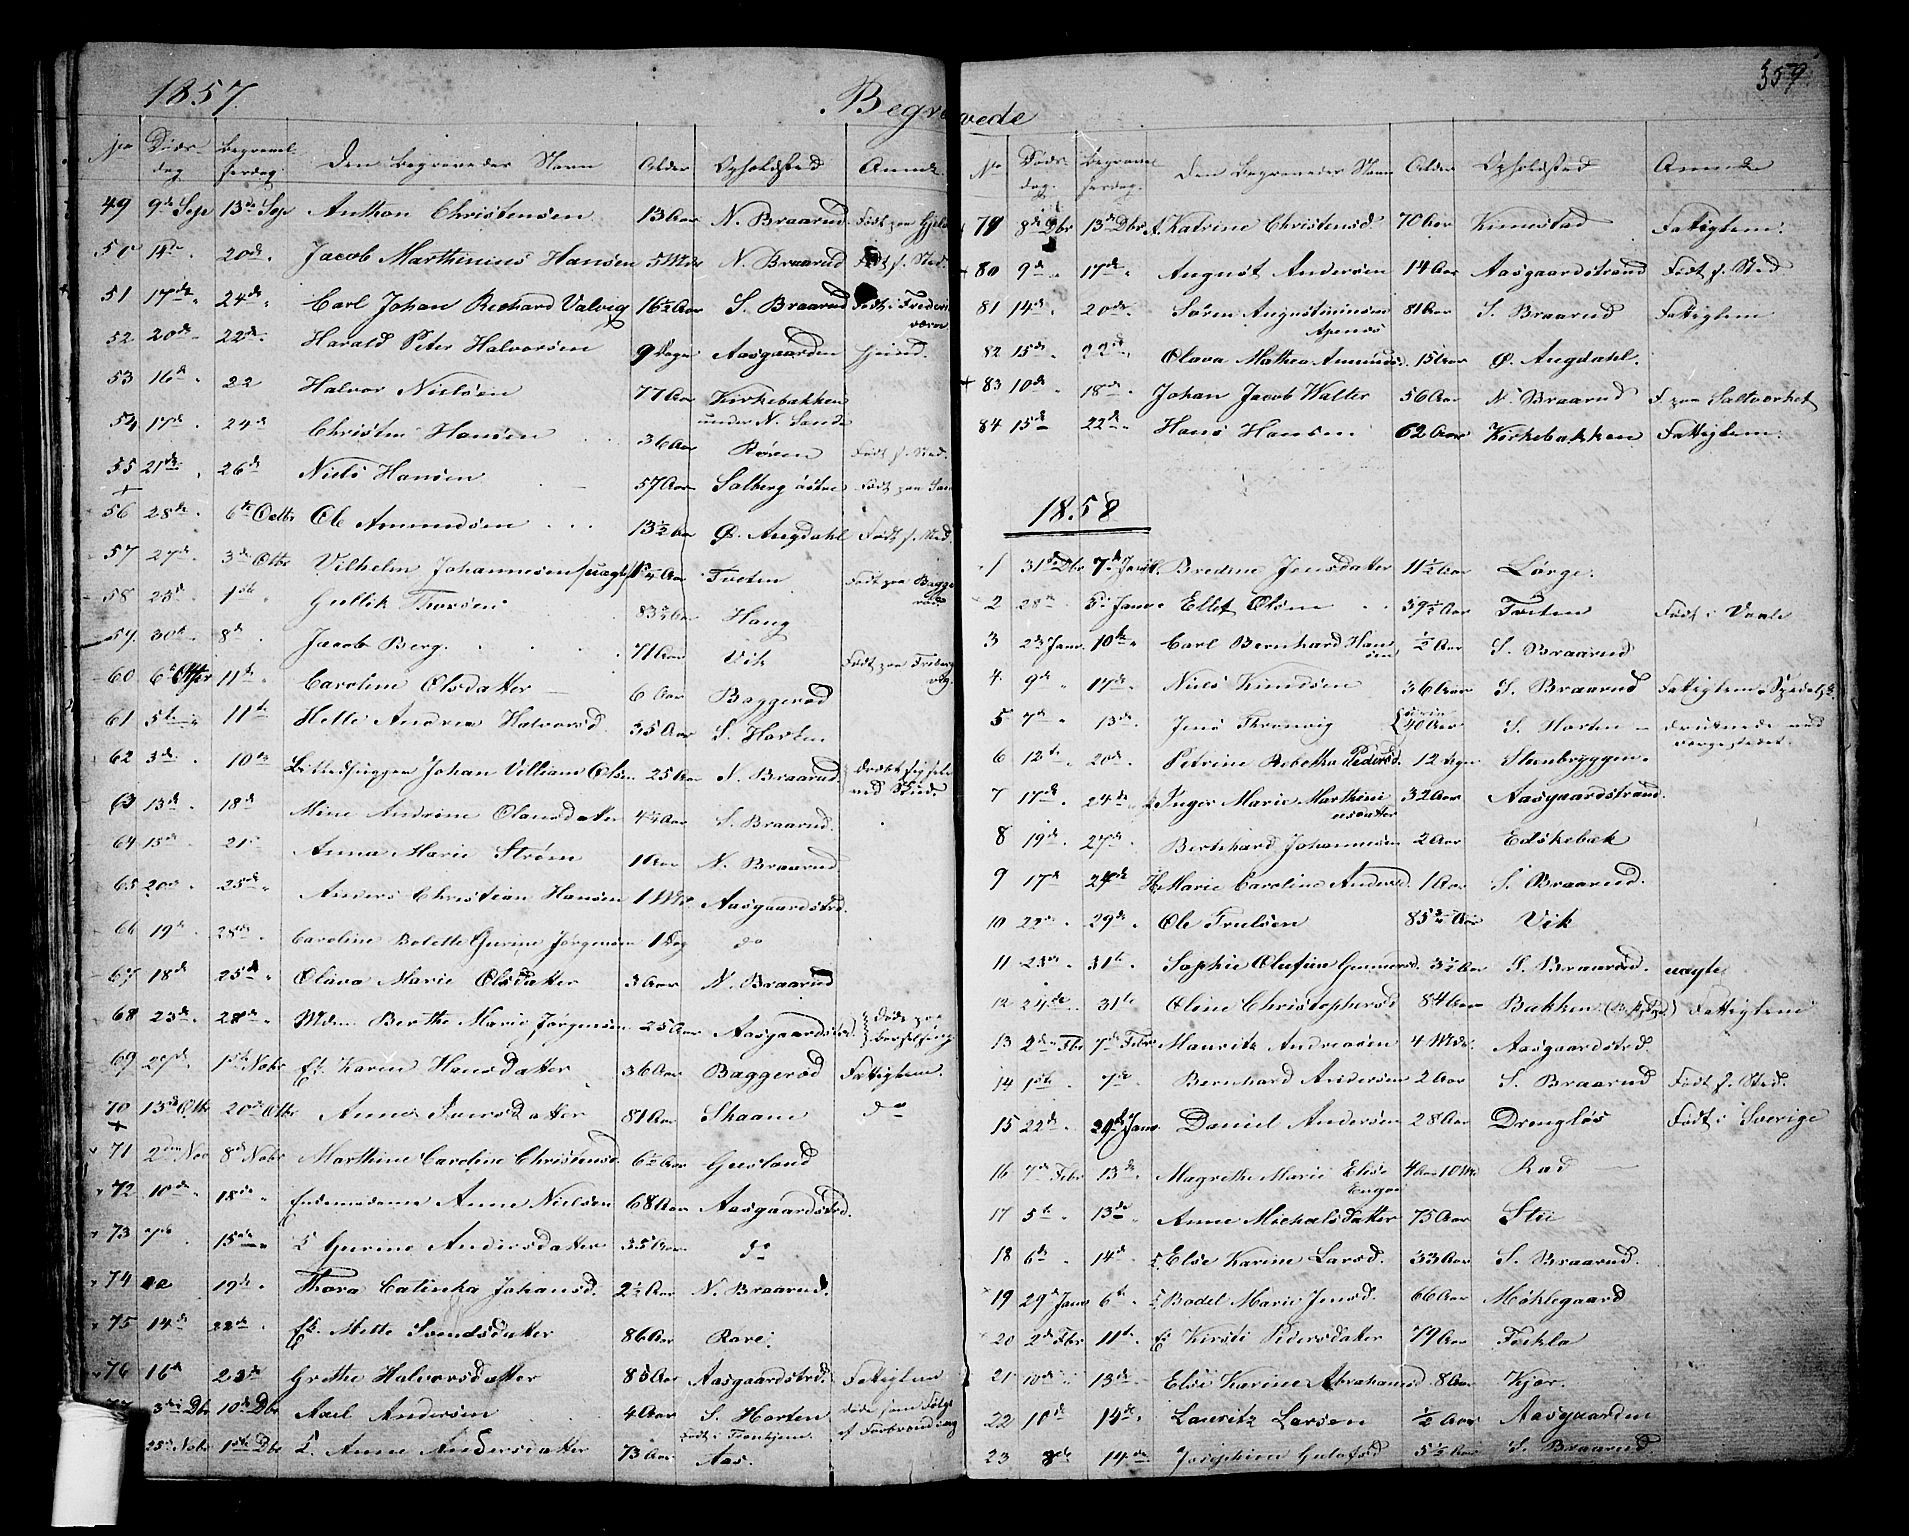 1857
Begravede
359
No Døds- dag Begravel- sesdag Den Begravedes Navn Alder Opholdssted Anm.
49 9de Sep 13de Sep Anthon Christensen 13 Aar N. Braarud Født paa
50 14de 20de Jacob Marthinius Hansen 5 Mdr N. Braarud Født p. Sted.
51 17de 24de Carl Johan Richard Valvig 16½ Aar S. Braarud Født i Frederiks
værn
52 20de 22de Harald Peter Halvorsen 9 Dage Aasgaarden
53 16de 22 Halvor Nielsen 77 Aar Kirkebakken
under N. Sande
54 17de 24de Christen Hansen 36 Aar Røren Født p. Sted.
55 21de 26de Niels Hansen 57 Aar Solberg østre Født paa
56 28de 6te Octbr Ole Amundsen 13½ Aar Ø. Augdahl Født p. Sted.
57 27de 3de Otbr Vilhelm Johannesen (uægte) Aar Tveten Født paa Bagge
rød
58 25de 1ste Gullik Thorsen Aar Haug
59 30te 8de Jacob Berg. 71 Aar Vik Født paa
60 6te Otbr 11te Caroline Olsdatter 6 Aar Baggerød
61 5te 11te Helle Andrea Halvorsd. 35 Aar S. Horten
62 3de 10de Johan Villiam Olsen 25 Aar N. Braarud
63 13de 18de Mine Andrine Olausdatter 4½ Aar S. Braarud.
64 15de 21 Anna Marie Strøm 1 Aar N. Braarud
65 20de 25de Anders Christian Hansen 1 Md. Aasgaardstrd.
66 19de 28de Caroline Bolette Gurine Jørgensen 1 Dag do
67 18de 25de Olava Marie Olsdatter 3 Aar N. Braarud
68 23de 28de Mdm Berthe Marie Jørgensen 25 Aar Aasgaardstrd. døde paa
barselseng
69 27de 1ste Nobr E. Karen Hansdatter 36 Aar Baggerød Fattiglem.
70 13de Otb 20de Otbr Anne Iversdatter 81 Aar Skaane do
71 2den Nov 8de Nobr Marthine Caroline Christensd. 6½ Aar Gusland
72 10de 15de Enkemadame Anne Nielsen 68 Aar Aasgaardstrd.
73 7de 15de E Gurine Andersdatter 35 Aar do
74 19de Thora Catinka Johansd. 2½ Aar N. Braarud.
75 14de 22de E. Mette Svendsdatter 86 Aar Rave.
76 16de 23de Grethe Halvorsdatter 85 Aar Aasgaardstrd. Fattiglem
77 3die Dbr 10de Dbr Axel Andersen 4 Aar S. Horten døde som Følge
af Forbrænding
25de Nobr 1ste Dbr E. Anne Andersdatter 73 Aar Aas.
No Døds dag. Begravel sesdag. Den Begravedes Navn Alder Opholdssted Anm.
79 8de Dbr 13de Dbr Katrine Christensd. 70 Aar Kinnestad Fattiglem.
80 9de 17de August Andersen 14 Aar Aasgaardstrand Født p. Sted
81 14de 20de Søren Augustinusen 81 Aar S. Braarud Fattiglem
Apenæs
82 15de 22de Olava Mathea Amunds. 15 Aar Ø. Augdahl.
83 10de 18de Johan Jacob Walter 56 Aar N. Braarud F. paa Saltværket
84 15de 22de Hans Hansen 62 Aar Kirkebakken Fattiglem.
1858
1 31te Dbr 7de Janr Bredine Jensdatter 11½ Aar Lørge.
2 28de 5te Janr Ellef Olsen 59½ Aar Tveten Født i Vaale
3 2de Janr 10de Carl Bernhard Han
sen ½ Aar S. Braarud
4 9de 17de Niels Knudsen 36 Aar S. Braarud Fattiglem.
5 7de 13de Jens Thronvig 40 Aar S. Horten druknede ved
6 12te 20de Petrine Rebekka Pedersd. 12 Dage Steenbryggen.
7 17de 24de Inger Marie Marthini
usdatter 32 Aar Aasgaardstrand.
8 19de 27de Bernhard Johannesen 2 Aar Edskebæk
9 17de 24de Marie Caroline Andersd. 1 Aar S. Braarud.
10 22de 29de Ole Trulsen 85¾ Aar Vik
11 23de 31te Sophie Olufine Gunnersd. 3½ Aar S. Braarud. uægte
12 24de 31te Oline Christophersd 84 Aar Bakken Fattiglem
13 2den Fbr 7de Febr Mauritz Andreasen 4 Mdr. Aasgaardstrd.
14 1ste 7de Bernhard Andersen 2 Aar S. Braarud Født p. Sted.
15 22de 29de Janr Daniel Andersen 28 Aar Drengløs Født i Sverige
16 7de Febr 13de Magrethe Marie Elise
Enger 4 Aar 10 Md Rød
17 5te 13de Anne Michelsdatter 75 Aar Stie
18 6te 14de E. Else Karine Larsd. 33 Aar S. Braarud.
19 29de Janr 6te E Bodel Marie Jensd. 66 Aar Møklegaard
20 2de Fbr 11te E Kirsti Pedersdatter 79 Aar Fekla
21 10de 13de Else Karine Abrahamsd 8 Aar Kjær.
22 10de 14de Lauritz Larsen ½ Aar Aasgaarden
23 8de 14de Josephine Gulofsd 5½ Aar S. Braarud